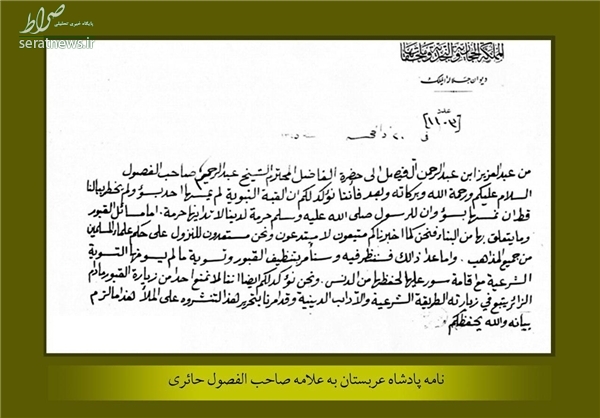 صراط
پایگاه خبری تحلیلی
seratnews.ir
المملكة الحجازية والنجدية وملحقاتها
ديوان جلالة الملك
عدد
[١١٠٣]
من عبدالعزيز ابن عبدالرحمن آل فيصل الى حضرة الفاضل المحترم الشيخ عبدالرحيم صاحب الفصول
السلام عليكم ورحمة الله وبركاته وبعد فاننا نؤكد لكم ان القبة النبوية لم يمسها احد بسؤ ولم يخطر ببالنا
قط ان نمسها بسؤ وان للرسول صلى الله عليه وسلم حرمة لدينا لا تدانيها حرمة . اما مسائل القبور
وما يتعلق بها من البناء فنحن كما اخبرناكم متبعون لا مبتدعون ونحن مستعدون للنزول على حكم علماء المسلمين
من جميع المذاهب . واما عدا ذالك فسننظر فيه وسنأمر بتنظيف القبور وتسوية مالم يسو منها التسوية
الشرعية مع اقامة سور عليها لحفظها من الدنس . ونحن نؤكد لكم ايضا اننا لا نمنع احد من زيارة القبور مادام
الزائر يتبع في زيارته الطريقة الشرعية والآداب الدينية وقد امرنا بتحرير هذا لتنشروه على الملأ هذا مالزم
بيانه والله يحفظكم
نامه پادشاه عربستان به علامه صاحب الفصول حائری